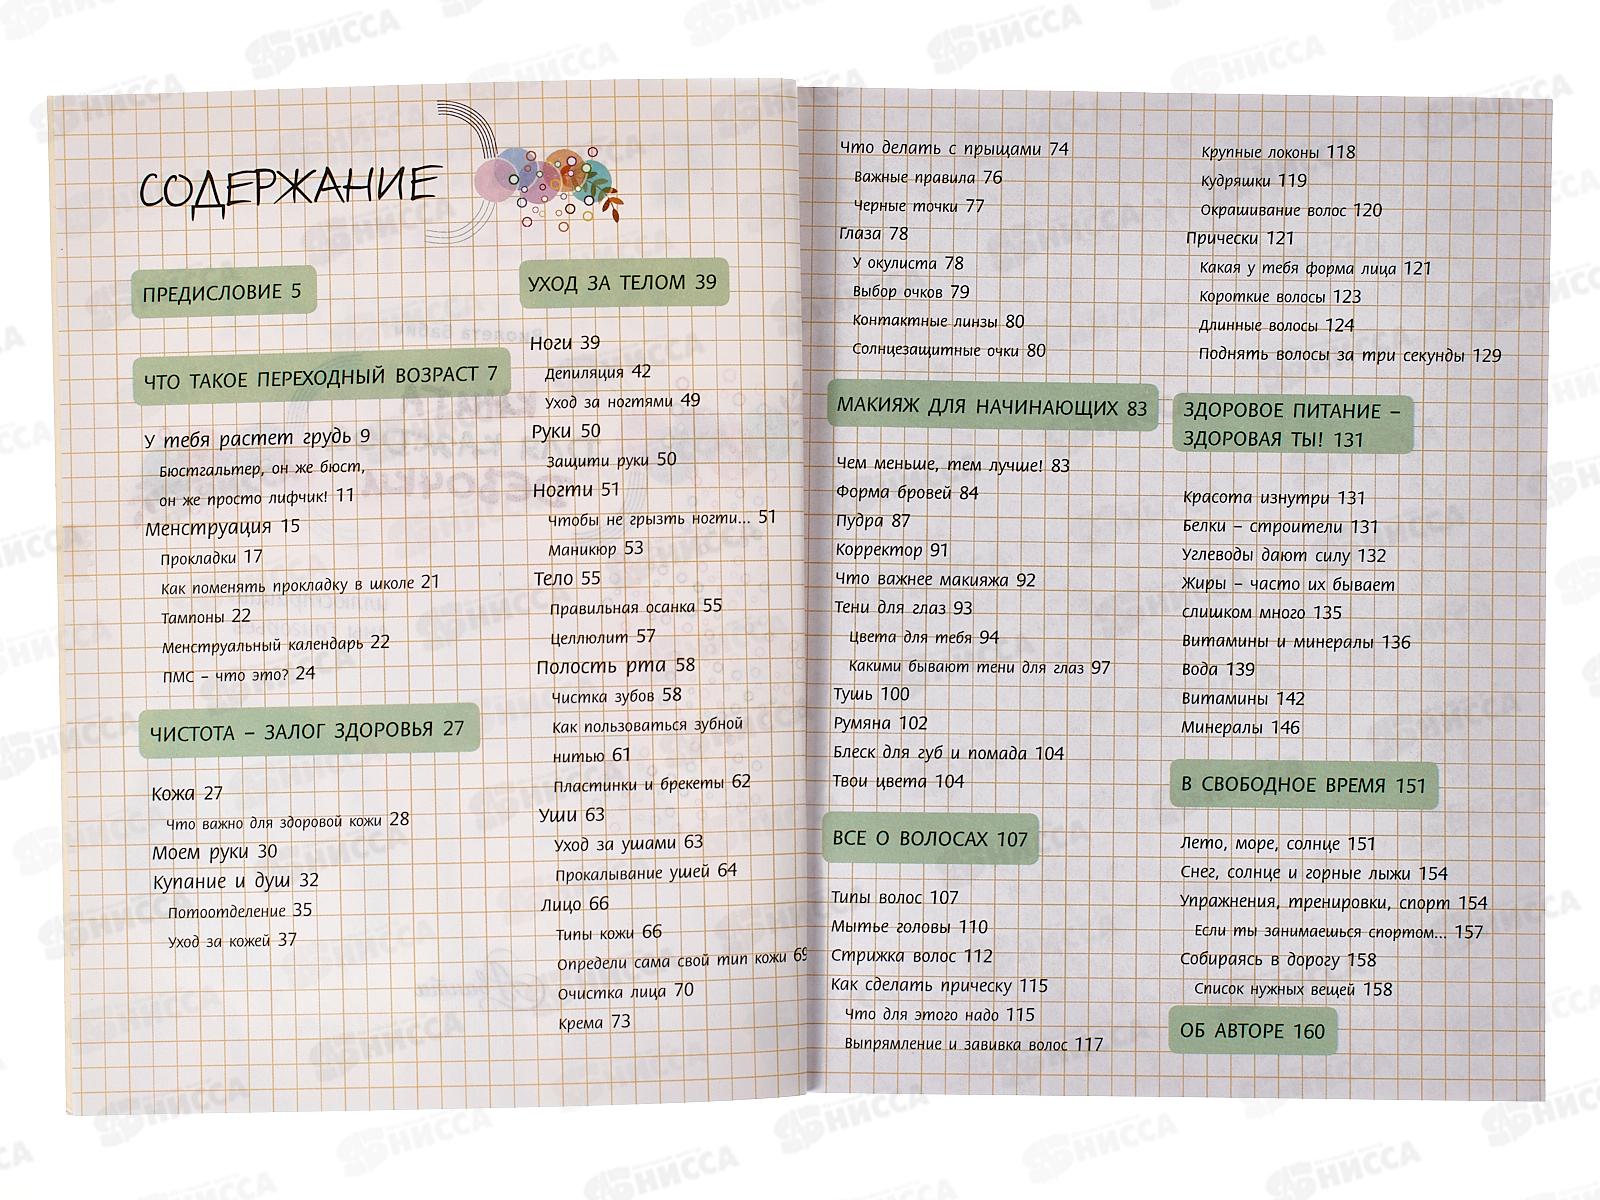 СОДЕРЖАНИЕ
ПРЕДИСЛОВИЕ 5
ЧТО ТАКОЕ ПЕРЕХОДНЫЙ ВОЗРАСТ 7
У тебя растет грудь 9
Бюстгальтер, он же бюст,
он же просто лифчик! 11
Менструация 15
Прокладки 17
Как поменять прокладку в школе 21
Тампоны 22
Менструальный календарь 22
ПМС – что это? 24
ЧИСТОТА – ЗАЛОГ ЗДОРОВЬЯ 27
Кожа 27
Что важно для здоровой кожи 28
Моем руки 30
Купание и душ 32
Потоотделение 35
Уход за кожей 37
УХОД ЗА ТЕЛОМ 39
Ноги 39
Депиляция 42
Уход за ногтями 49
Руки 50
Защити руки 50
Ногти 51
Чтобы не грызть ногти... 51
Маникюр 53
Тело 55
Правильная осанка 55
Целлюлит 57
Полость рта 58
Чистка зубов 58
Как пользоваться зубной
нитью 61
Пластинки и брекеты 62
Уши 63
Уход за ушами 63
Прокалывание ушей 64
Лицо 66
Типы кожи 66
Определи сама свой тип кожи 69
Очистка лица 70
Крема 73
Что делать с прыщами 74
Важные правила 76
Черные точки 77
Глаза 78
У окулиста 78
Выбор очков 79
Контактные линзы 80
Солнцезащитные очки 80
МАКИЯЖ ДЛЯ НАЧИНАЮЩИХ 83
Чем меньше, тем лучше! 83
Форма бровей 84
Пудра 87
Корректор 91
Что важнее макияжа 92
Тени для глаз 93
Цвета для тебя 94
Какими бывают тени для глаз 97
Тушь 100
Румяна 102
Блеск для губ и помада 104
Твои цвета 104
ВСЕ О ВОЛОСАХ 107
Типы волос 107
Мытье головы 110
Стрижка волос 112
Как сделать прическу 115
Что для этого надо 115
Выпрямление и завивка волос 117
Крупные локоны 118
Кудряшки 119
Окрашивание волос 120
Прически 121
Какая у тебя форма лица 121
Короткие волосы 123
Длинные волосы 124
Поднять волосы за три секунды 129
ЗДОРОВОЕ ПИТАНИЕ –
ЗДОРОВАЯ ТЫ! 131
Красота изнутри 131
Белки – строители 131
Углеводы дают силу 132
Жиры – часто их бывает
слишком много 135
Витамины и минералы 136
Вода 139
Витамины 142
Минералы 146
В СВОБОДНОЕ ВРЕМЯ 151
Лето, море, солнце 151
Снег, солнце и горные лыжи 154
Упражнения, тренировки, спорт 154
Если ты занимаешься спортом... 157
Собираясь в дорогу 158
Список нужных вещей 158
ОБ АВТОРЕ 160